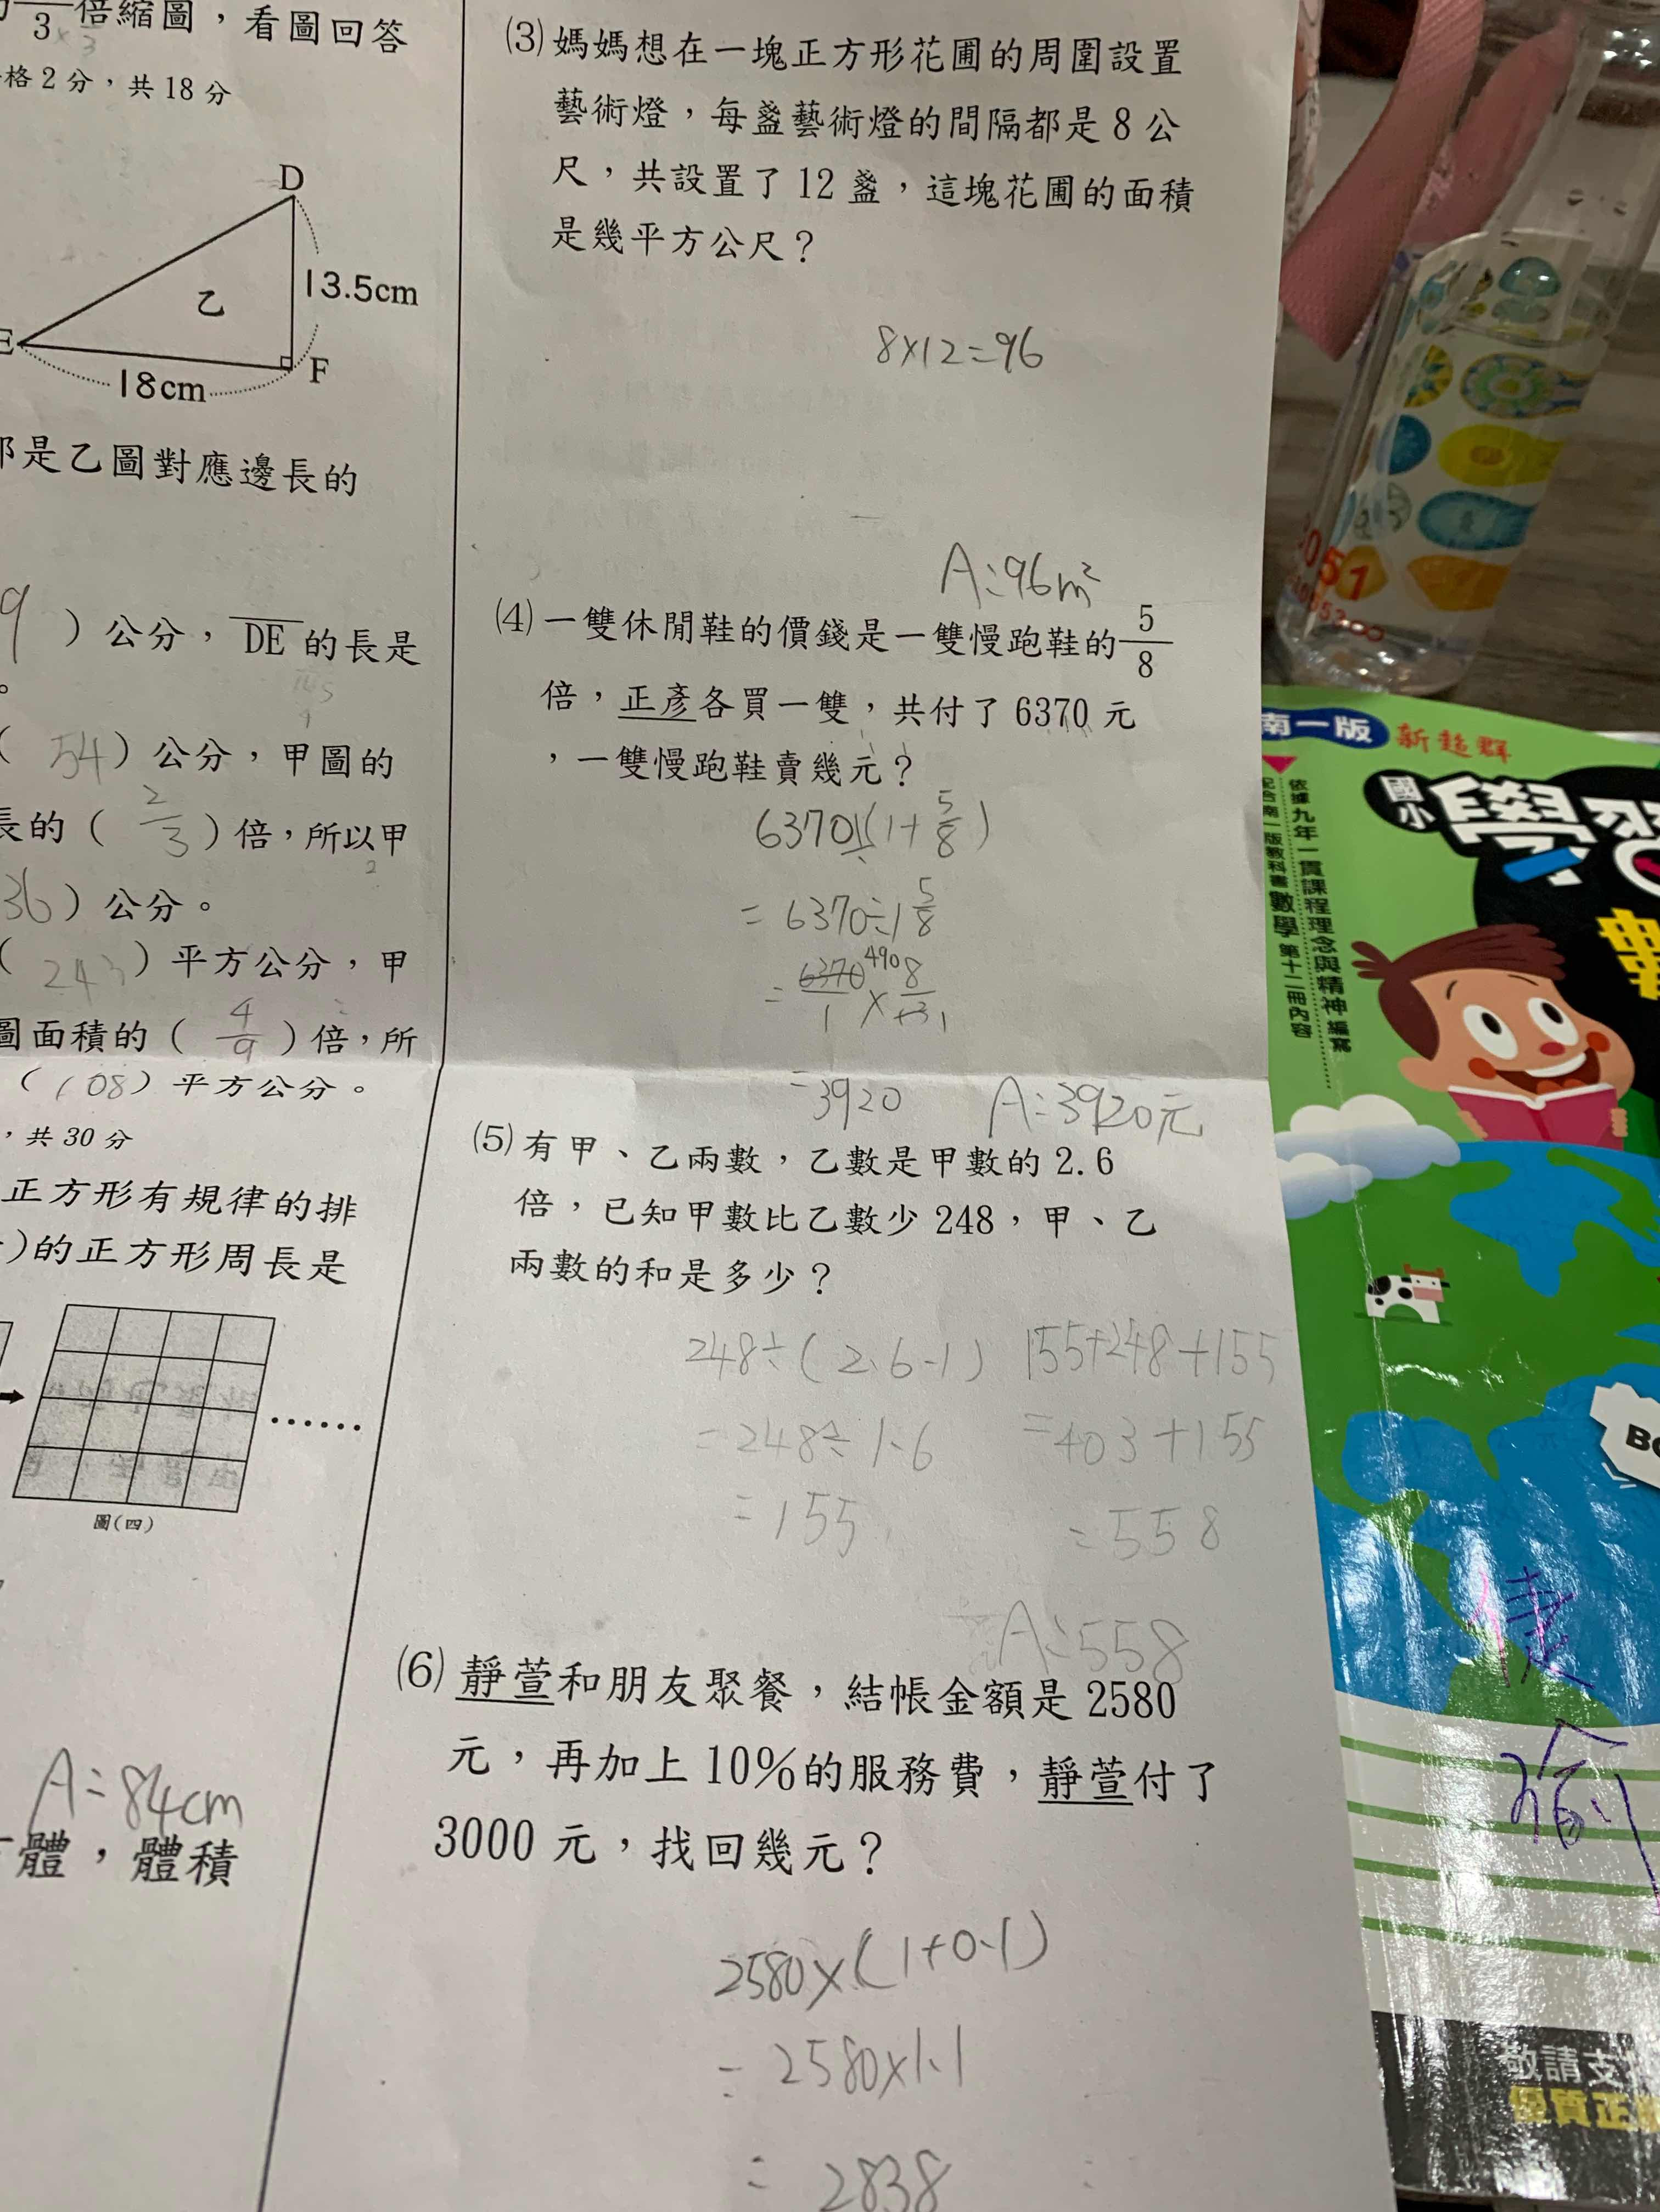 3
倍縮圖，看圖回答
格2分，共18分
D
乙
13.5cm
E
18cm
F
是乙圖對應邊長的
9）公分，DE的長是
。
（54）公分，甲圖的
長的（2/3）倍，所以甲
36）公分。
（243）平方公分，甲
圖面積的（4/9）倍，所
（108）平方公分。
，共30分
正方形有規律的排
)的正方形周長是
……
圖(四)
A：84cm
體，體積
(3)媽媽想在一塊正方形花圃的周圍設置
藝術燈，每盞藝術燈的間隔都是8公
尺，共設置了12盞，這塊花圃的面積
是幾平方公尺？
8×12=96
A：96m²
(4)一雙休閒鞋的價錢是一雙慢跑鞋的5/8
倍，正彥各買一雙，共付了6370元
，一雙慢跑鞋賣幾元？
6370÷(1+5/8)
=6370÷1 5/8
=6370/1×8/13
490
1
=3920
A：3920元
(5)有甲、乙兩數，乙數是甲數的2.6
倍，已知甲數比乙數少248，甲、乙
兩數的和是多少？
248÷(2.6-1)
=248÷1.6
=155
155+248+155
=403+155
=558
A：558
(6)靜萱和朋友聚餐，結帳金額是2580
元，再加上10%的服務費，靜萱付了
3000元，找回幾元？
2580×(1+0.1)
=2580×1.1
=2838
051
南一版
新超群
國小
學習
數
依據九年一貫課程理念與精神編寫
配合南一版教科書數學第十二冊內容
BO
敬請支
優質正